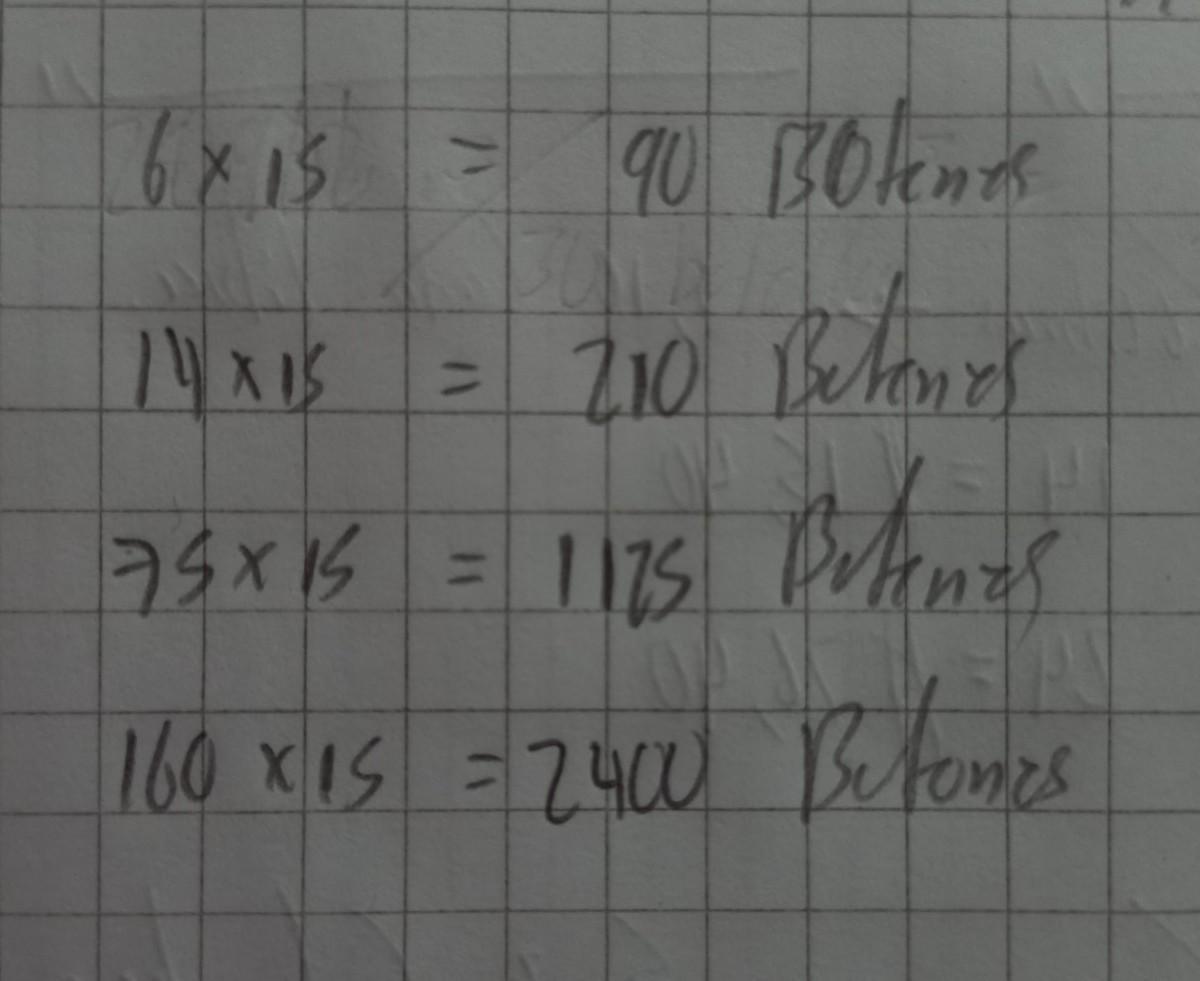 6 x 15 = 90 BOtones
14 x 15 = 210 Botones
75 x 15 = 1125 Botones
160 x 15 = 2400 Botones